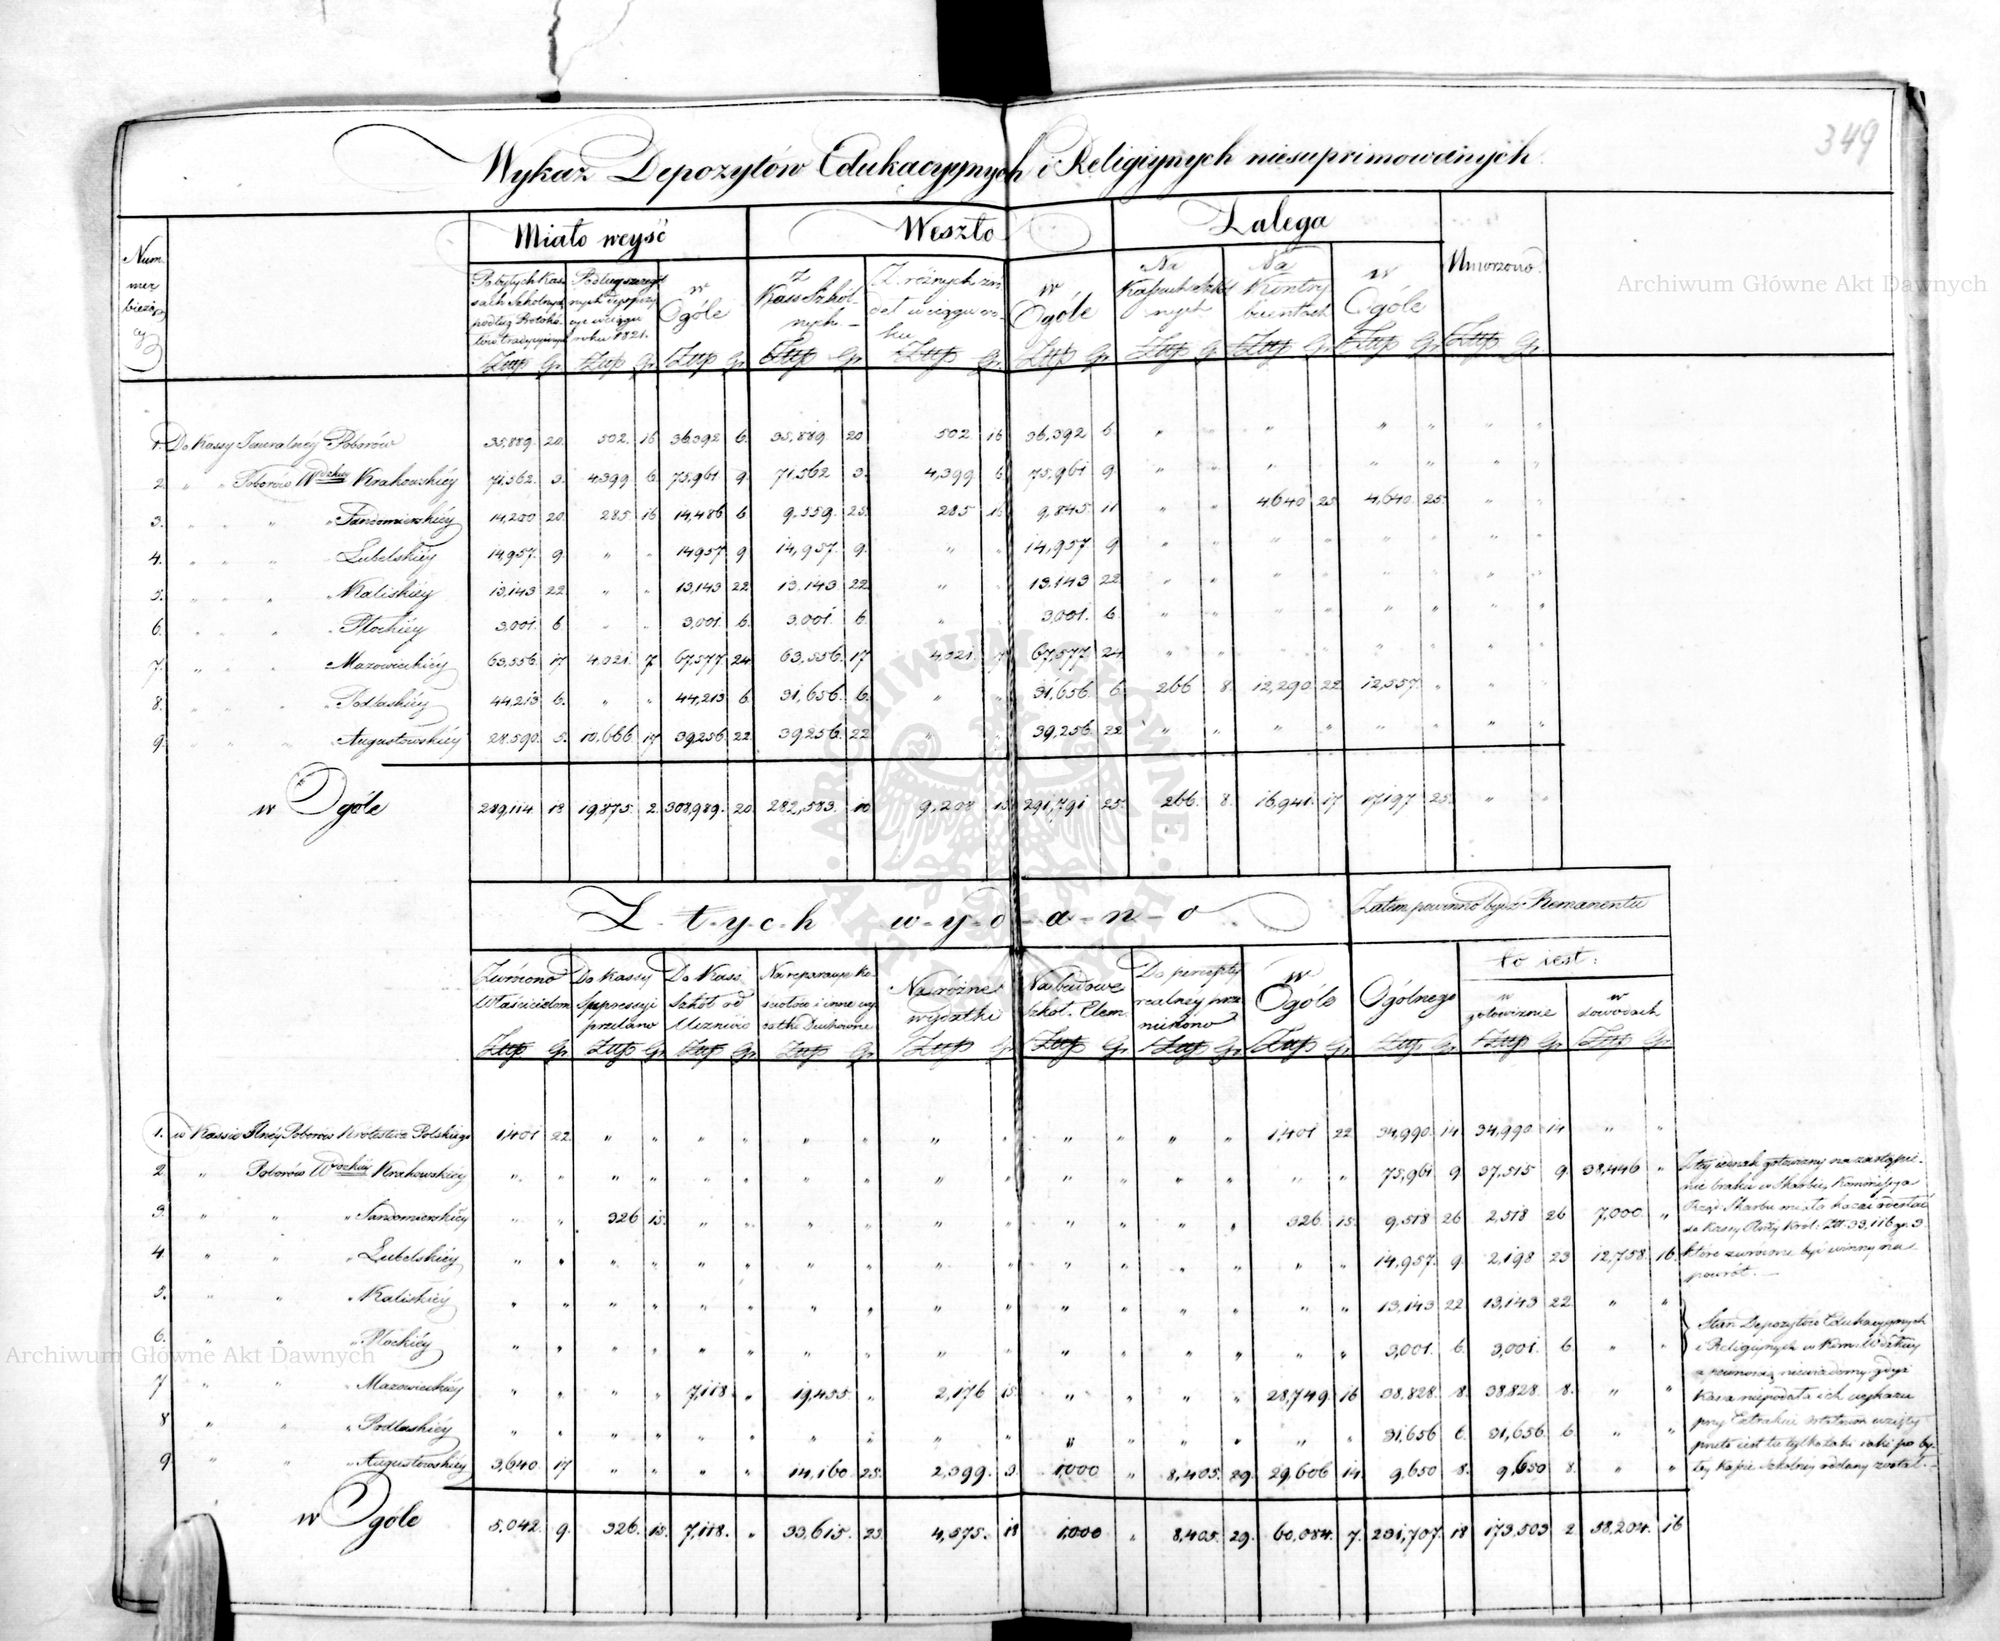 349
Wykaz Depozytów Edukacyynych i Religiynych niesuprimowanych
Numer bieżący
Miało weyść
Weszło
Zalega
Umorzono
Po bytych Kassach Szkolnych podług Protokołów tradycyinych
Podług szczegulnych depozycyi w ciągu roku 1821.
w Ogóle
Z Kass Szkolnych
Z różnych źródeł w ciągu roku
w Ogóle
Na Kassach Szkolnych
Na Kontrybuentach
w Ogóle
Złtp Gr Złtp Gr Złtp Gr Złtp Gr Złtp Gr Złtp Gr Złtp Gr Złtp Gr Złtp Gr Złtp Gr
1. Do Kassy Jeneralnéy Poborów 35,889. 20. 502. 16 36,392 6. 35,889. 20 502 16 36,392 6 " " " " " " " "
2 " " Poborów Wdzkiey Krakowskiéy 71,562. 3. 4,399 6. 75,961 9. 71,562 3. 4,399 6 75,961 9. " " " " " " " "
3. " " " " Sandomierskiéy 14,200 20. 285. 16 14,486 6 9,559. 25. 285 16 9,845. 11 " " 4,640 25 4,640. 25. " "
4. " " " " Lubelskiéy 14,957. 9. " " 14,957. 9 14,957. 9. " " 14,957 9 " " " " " " " "
5. " " " " Kaliskiéy 13,143 22 " " 13,143 22 13,143 22 " " 13,143 22 " " " " " " " "
6. " " " " Płockiéy 3,001. 6 " " 3,001. 6. 3,001. 6. " " 3,001. 6. " " " " " " " "
7. " " " " Mazowieckiéy 63,556. 17 4,021. 7 67,577 24 63,556. 17 4,021. 7 67,577 24 " " " " " " " "
8. " " " " Podlaskiéy 44,213 6. " " 44,213 6 31,656. 6. " " 31,656. 6. 266 8. 12,290 22 12,557. " " "
9. " " " " Augustowskiéy 28,590. 5. 10,666 17 39,256 22. 39,256. 22 " " 39,256. 22 " " " " " " " "
w Ogóle 289,114. 18 19,875. 2. 308,989. 20. 282,583. 10 9,208 15 291,791 25. 266. 8. 16,941. 17 17,197 25. " "
Z-tych w-y-d-a-n-o
Zatem powinno bydź Remanentu
Zwrócono Właścicielom
Do Kassy Suppressyi przelano
Do Kass Szkół od Uczniów
Na reparacye kościołów i inne wydatki Duchowne
Na różne wydatki
Na budowę Szkół. Elem.
Do percepty realney przeniesiono
w Ogóle
Ogólnego
to iest:
w gotowiznie
w dowodach
Złtp Gr Złtp Gr Złtp Gr Złtp Gr Złtp Gr Złtp Gr Złtp Gr Złtp Gr Złtp Gr Złtp Gr Złtp Gr
1. w Kassie Jlnéy Poborów Królestwa Polskiego 1,401 22 " " " " " " " " " " " " 1,401 22 34,990. 14 34,990 14 " "
2. " Poborów Wdzkiey Krakowskiéy " " " " " " " " " " " " " " " " 75,961 9 37,515 9. 38,446 "
3. " " " Sandomierskiéy " " 326 15. " " " " " " " " " " 326. 15. 9,518 26 2,518 26 7,000. "
4. " " " Lubelskiéy " " " " " " " " " " " " " " " " 14,957. 9. 2,198 23 12,758. 16.
5. " " " Kaliskiéy " " " " " " " " " " " " " " " " 13,143 22 13,143 22 " "
6. " " " Płockiéy " " " " " " " " " " " " " " " " 3,001. 6. 3,001. 6. " "
7 " " " Mazowieckiéy " " " " 7,118. " 19,455 " 2,176 15. " " " " 28,749 16 38,828. 8. 38,828 8. " "
8 " " " Podlaskiéy " " " " " " " " " " " " " " " " 31,656 6. 31,656. 6. " "
9 " " " Augustowskiéy 3,640. 17 " " " " 14,160 23. 2,399. 3. 1,000 " 8,405. 29. 29,606 14. 9,650 8. 9,650 8. " "
w Ogóle 5,042. 9. 326. 15. 7,118. " 33,615. 23 4,575. 18 1,000 " 8,405. 29. 60,084. 7. 231,707. 18 173,503 2 58,204. 16
Z téy iednak gotowizny na zastąpienie
braku w Skarbie, Kommissya
Rząd: Skarbu miała kazać odesłać
do Kassy Głóey Król: Złt: 33,116 gr. 3
które zwrócone być winny na
powrót.
Stan Depozytów Edukacyynych
i Religiynych w Kom: Wdzkiey
z pewnością niewiadomy, gdyż
Kassa niepodała ich wykazu
przy Extrakcie ostatnim wzięty
przeto iest tu tylko taki iaki po by-
łéy Kassie Szkolnéy oddany został.
Archiwum Główne Akt Dawnych
Archiwum Główne Akt Dawnych
ARCHIWUM GŁÓWNE AKT DAWNYCH